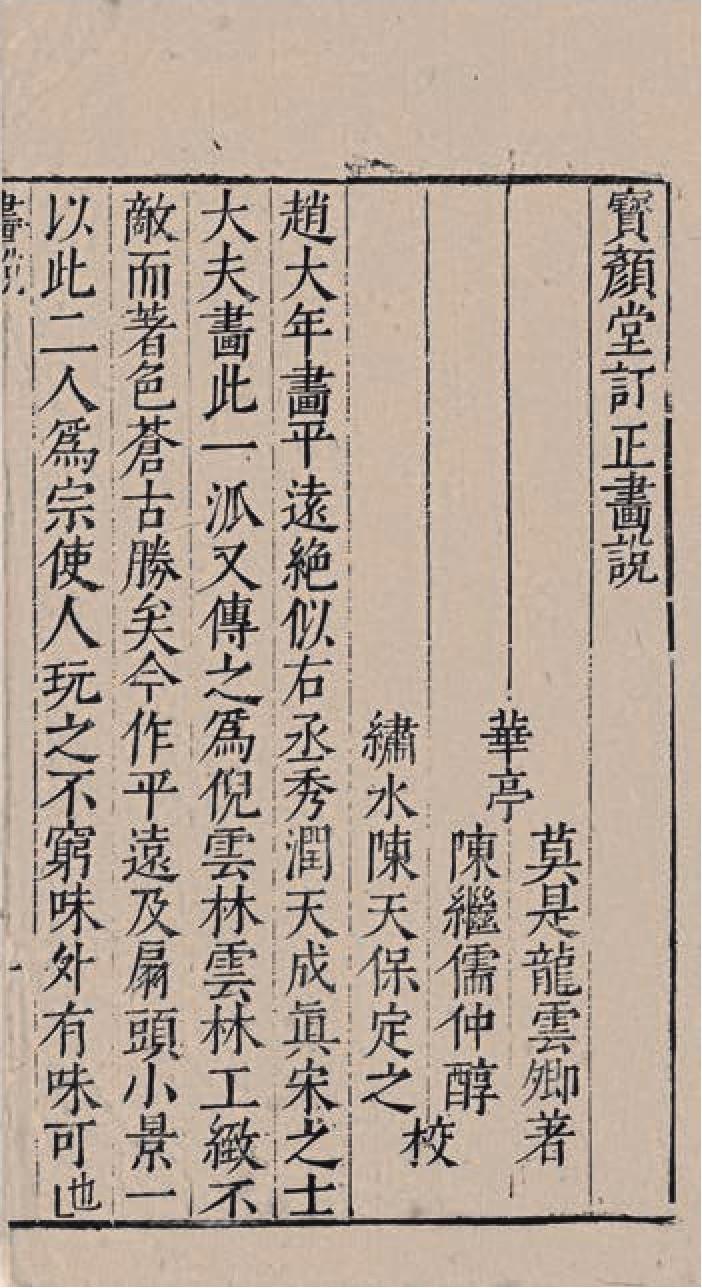 寳顏堂訂正畫説
華亭
莫是龍雲卿著
陳繼儒仲醇
繡水陳天保定之
校
趙大年畫平遠絶似右丞秀潤天成眞宋之士
大夫畫此一派又傳之爲倪雲林雲林工緻不
敵而著色蒼古勝矣今作平遠及扇頭小景一
以此二人爲宗使人玩之不窮味外有味可也
畫説